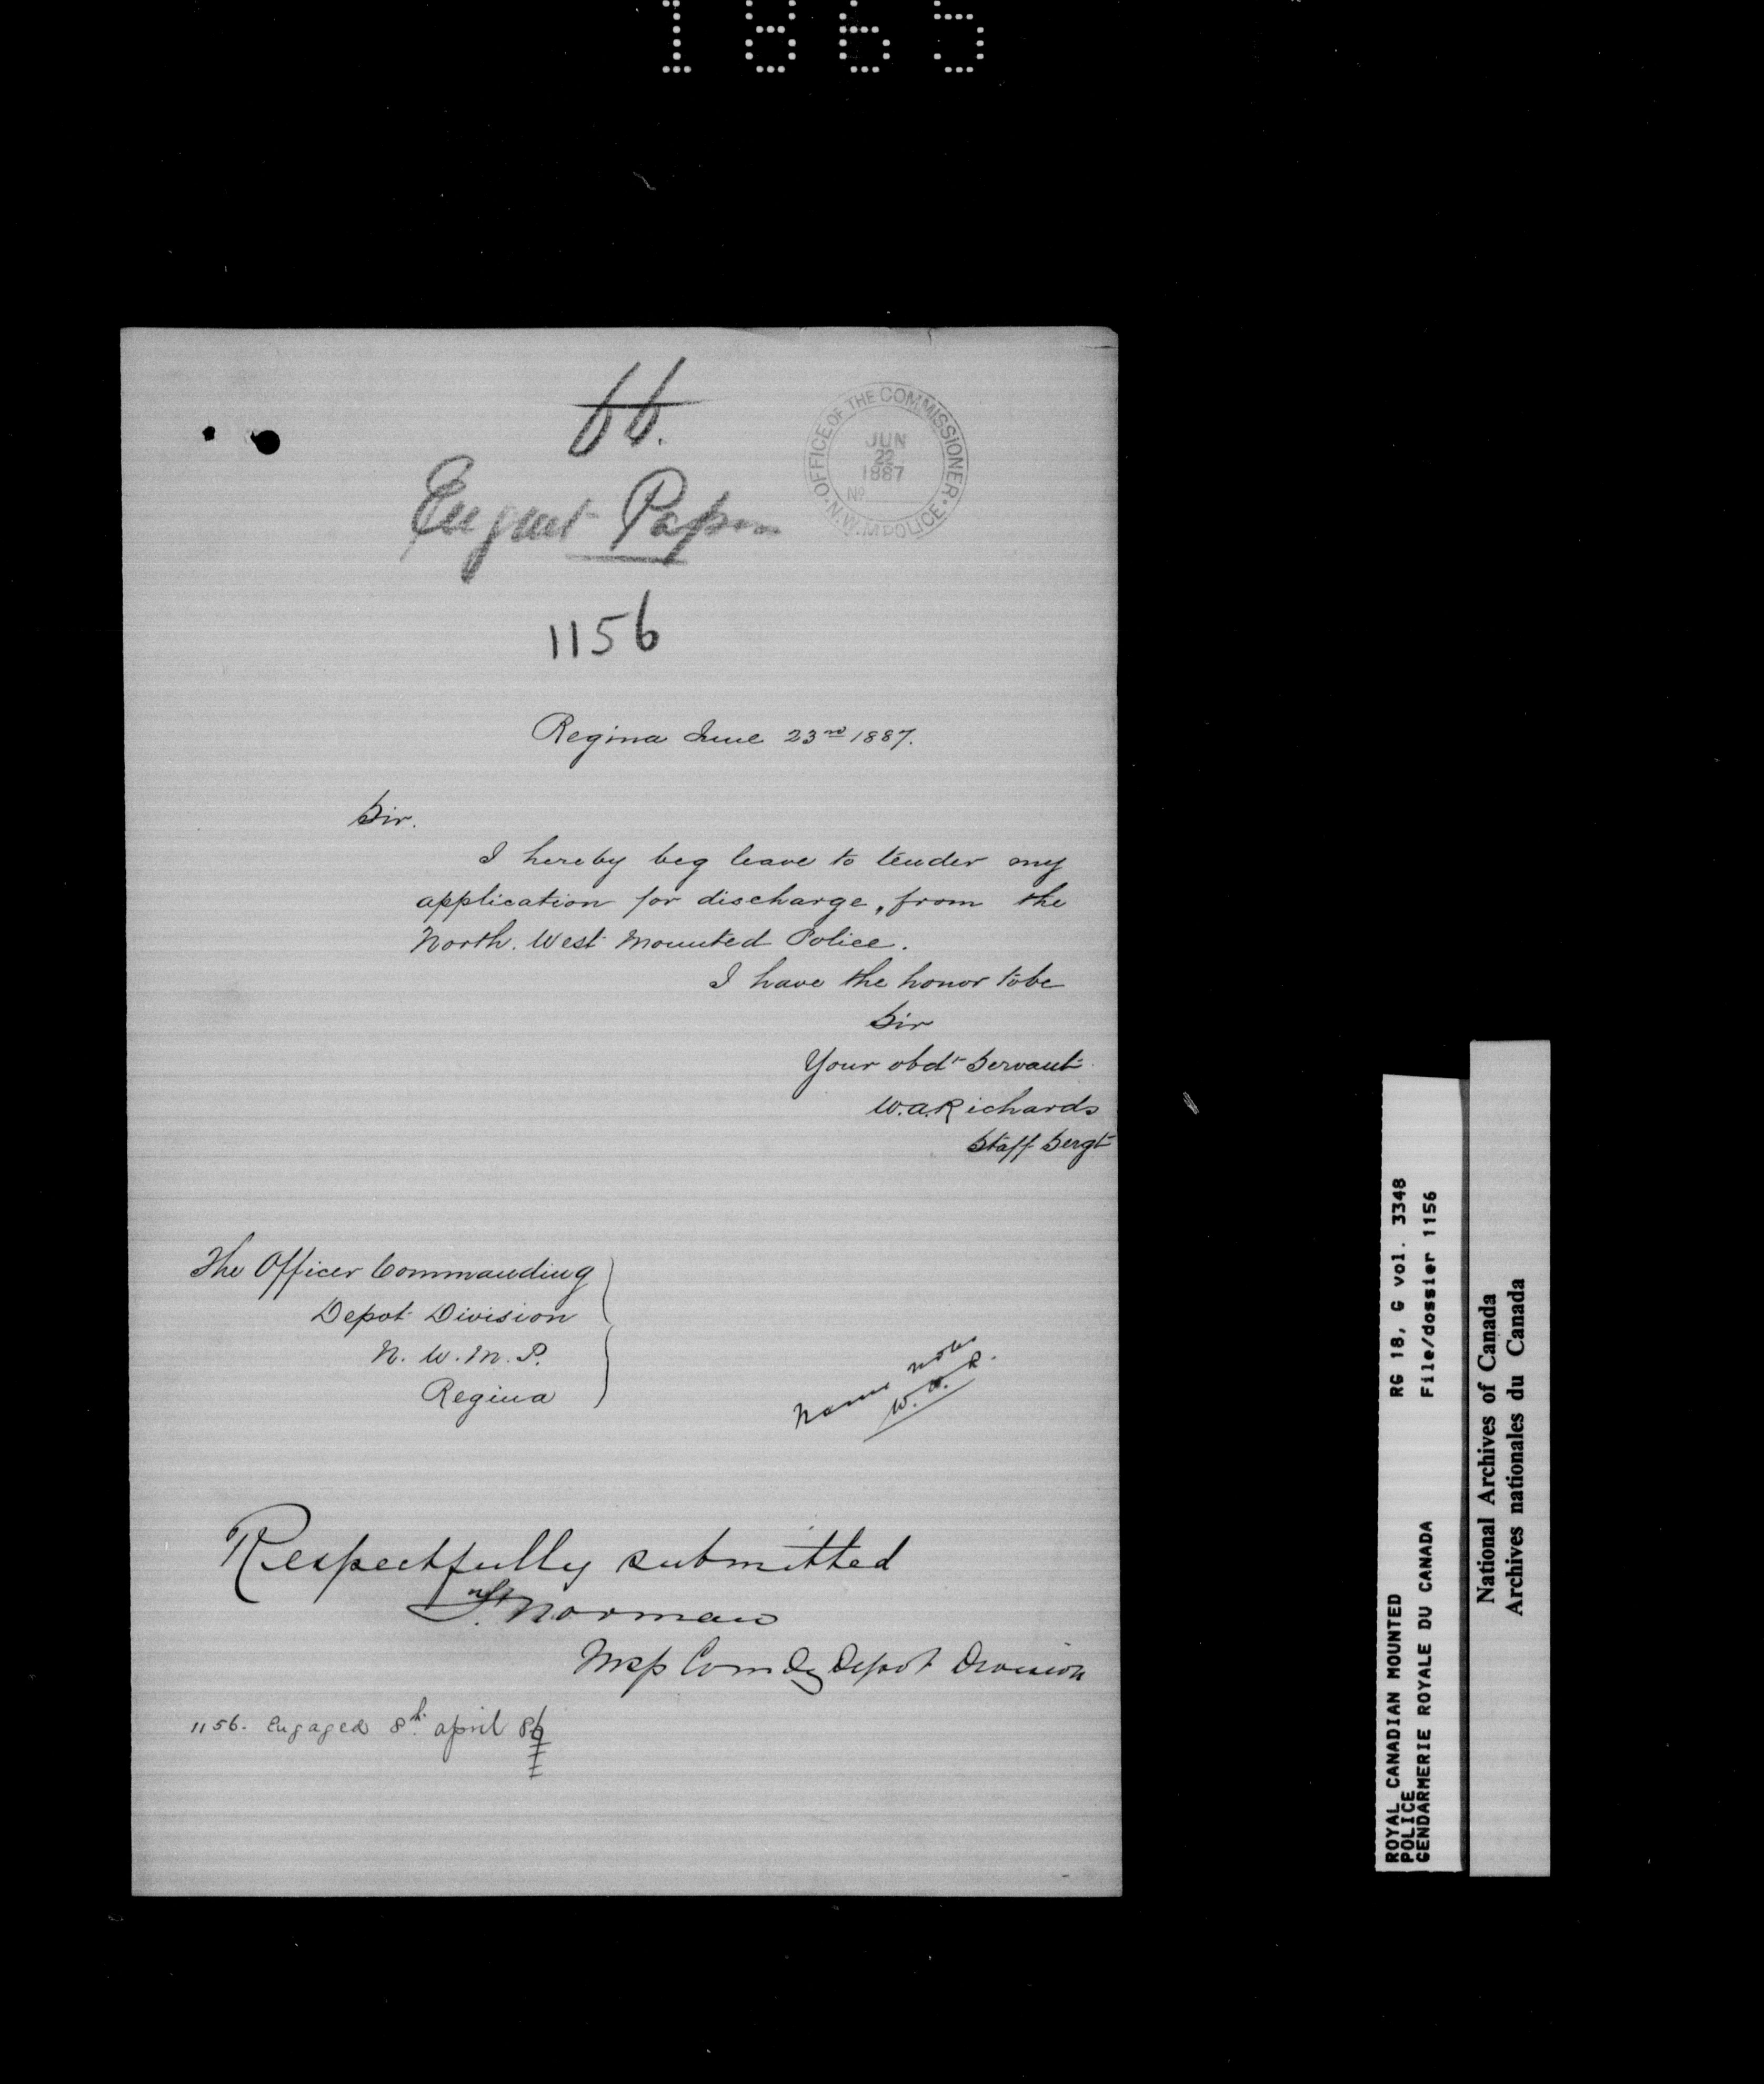 1865
66.
Engmt Papers
OFFICE OF THE COMMISSIONER · N.W.M POLICE ·
JUN
22
1887
No
1156
Regina June 23rd 1887.
Sir.
I hereby beg leave to tender my
application for discharge, from the
North. West Mounted Police.
I have the honor to be
Sir
Your obdt Servant
W.A. Richards
Staff Sergt
The Officer Commanding
Depot Division
N. W. M. P.
Regina
Name noted
W. A. R.
Respectfully submitted
Norman
Insp Comdg Depot Division
1156. Engaged 8th april 86
ROYAL CANADIAN MOUNTED
POLICE
GENDARMERIE ROYALE DU CANADA
RG 18, G vol. 3348
File/dossier 1156
National Archives of Canada
Archives nationales du Canada